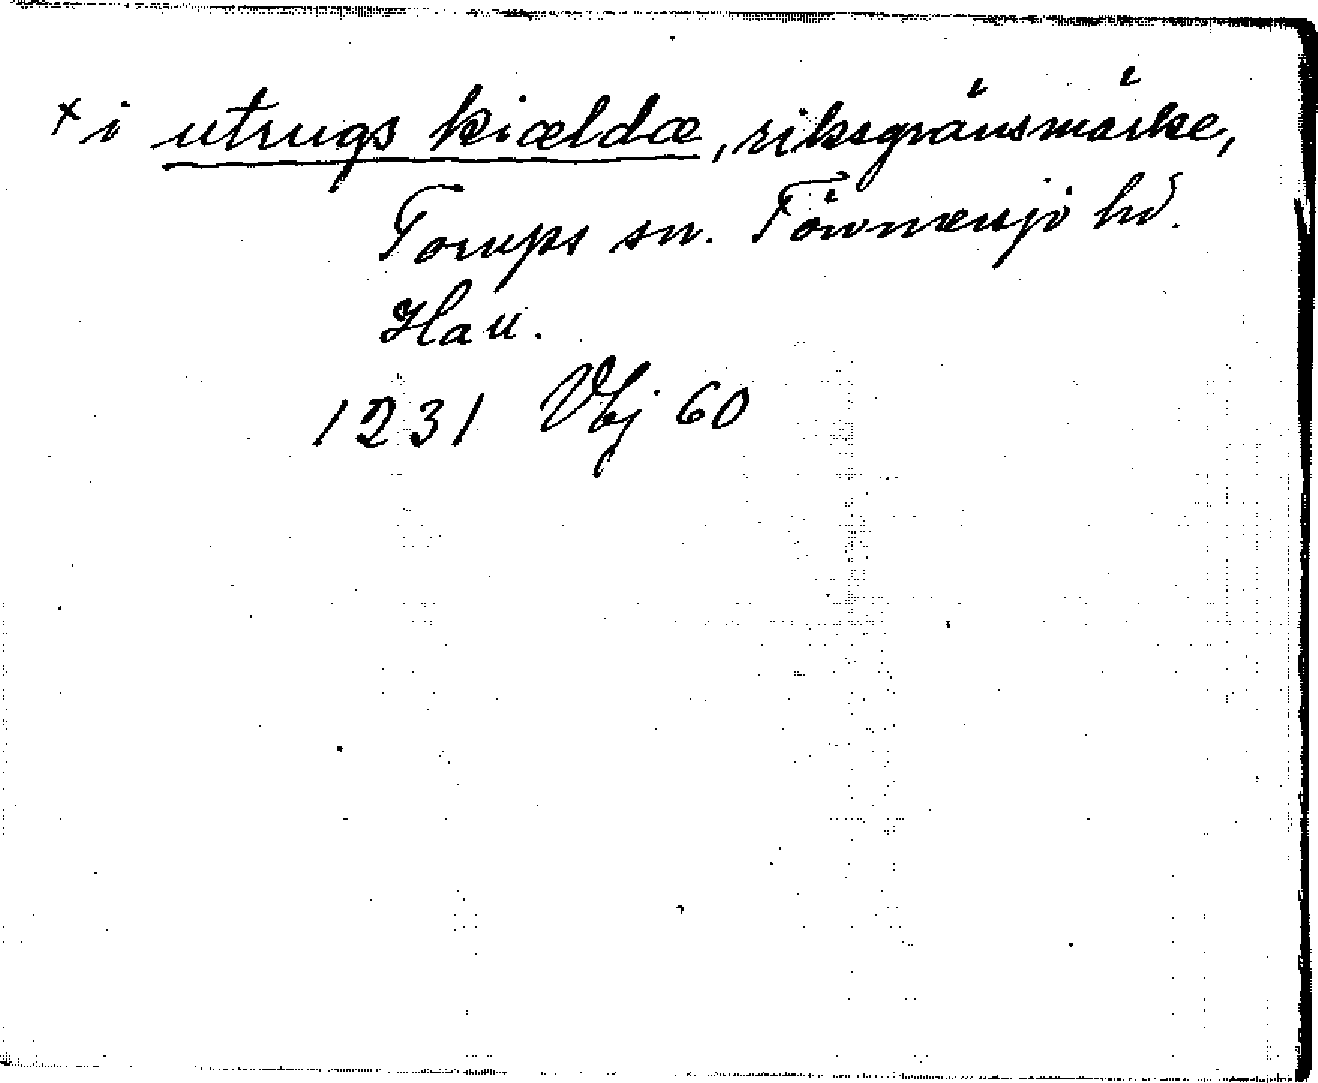 × i utrugs kiældæ, riksgränsmärke,
Torups sn. Tönnersjö hd.
Hall.
1231 Vbj 60